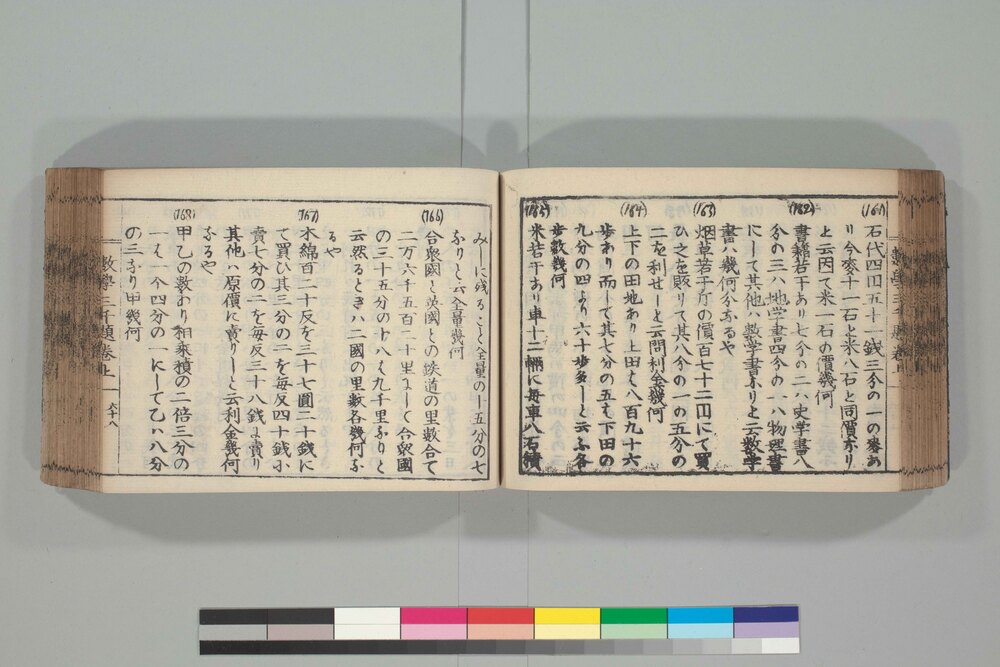 (161)
石代四円五十一銭三分の一の麥あ
り今麥十一石と米八石と同價なり
と云因て米一石の價幾何
(162)
書籍若干あり七分の二ハ史学書八
分の三ハ地学書四分の一ハ物理書
にして其他ハ数学書なりと云数学
書ハ幾何分なるや
(163)
烟草若干斤の價百七十二円にて買
ひ之を販りて其八分の一の五分の
二を利せしと云問利金幾何
(164)
上下の田地あり上田ハ八百九十六
歩あり而して其七分の五ハ下田の
九分の四より六十歩多しと云ふ各
歩数幾何
(165)
米若干あり車十二輛に毎車八石積
みしに残ること全量の十五分の七
なりと云全量幾何
(166)
合衆國と英國との鉄道の里数合て
二万六千五百二十里にして合衆國
の三十五分の十八ハ九千里なりと
云然るときハ二國の里数各幾何な
るや
(167)
木綿百二十反を三十七圓二十銭に
て買ひ其三分の二を毎反四十銭に
賣七分の二を毎反三十八銭に賣り
其他ハ原價に賣りしと云利金幾何
なるや
(168)
甲乙の数あり相乗積の二倍三分の
一ハ一今四分の一にして乙ハ八分
の三なり甲幾何
數學三千題卷上
六十八